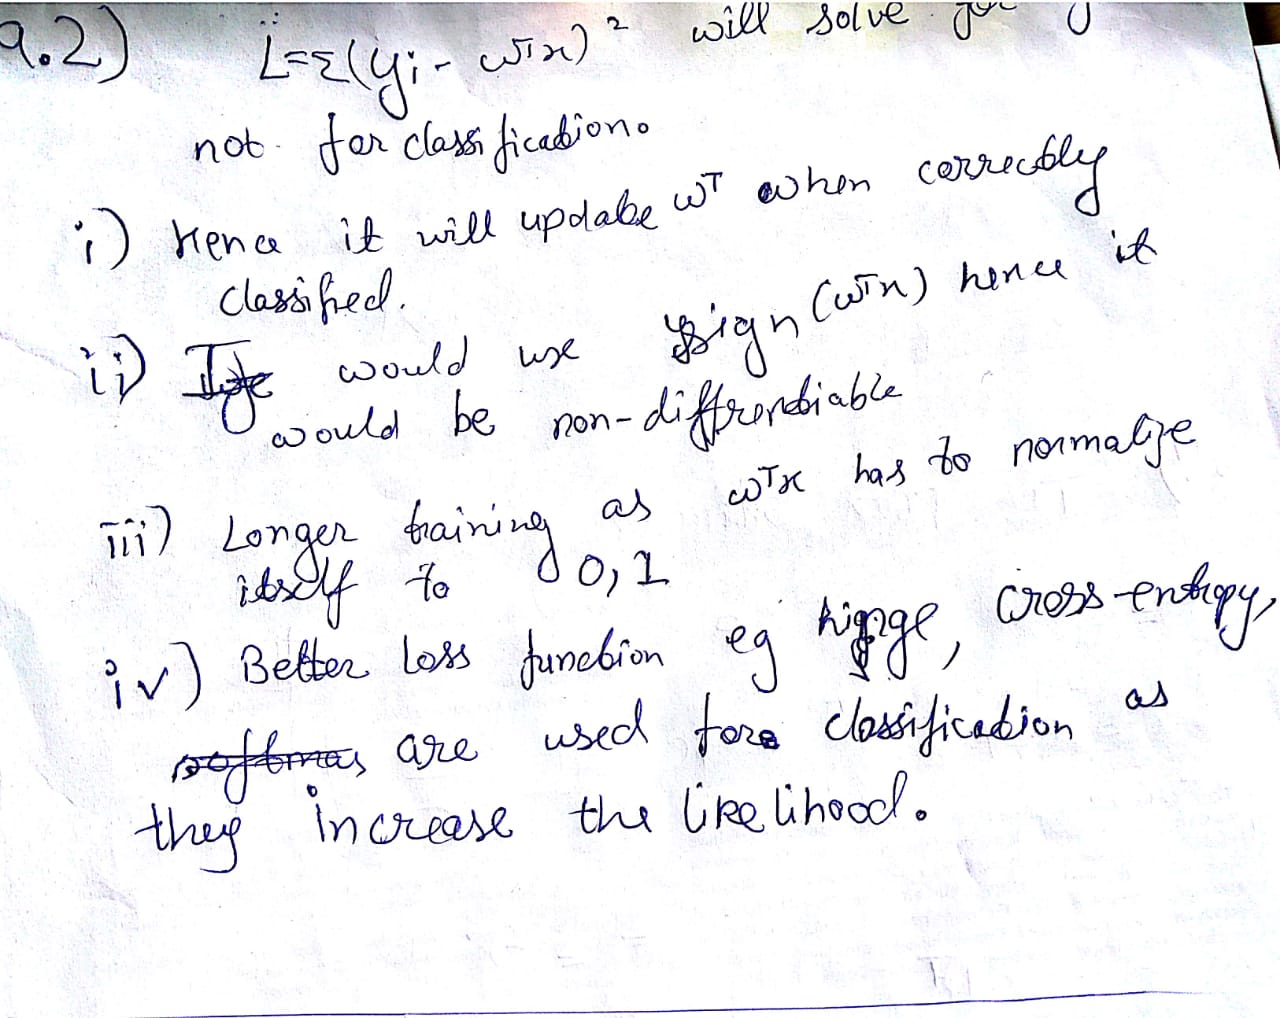 9.2) L=Σ(yi - wᵀx)² will solve for
not for classification.
i) Hence it will update wᵀ when correctly
classified.
ii) It would use sign (wᵀx) hence it
would be non-diffrentiable
iii) Longer training as wᵀx has to normalize
itself to 0,1
iv) Better loss function eg hinge, cross-entropy,
softmax are used for classification as
they increase the likelihood.